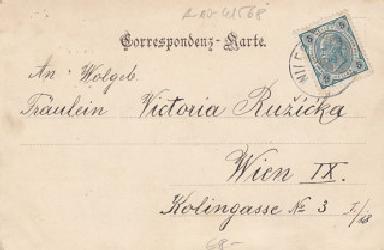 A AD-41568
Correspondenz-Karte.
5 5
An Wolgeb.
Fräulein Victoria Ružička
Wien IX.
Kolingasse No 3 I/18
68-